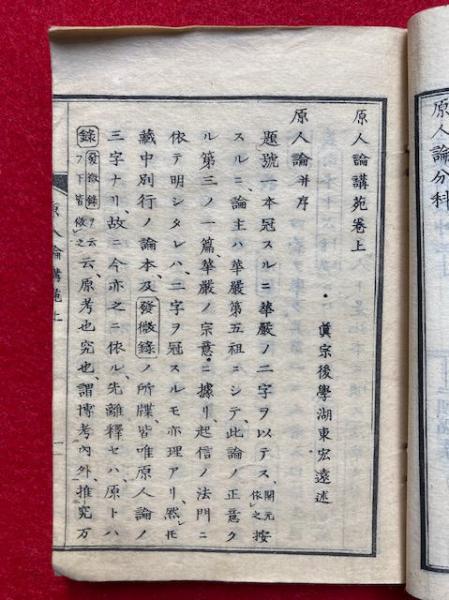 原人論分科
原人論講苑卷上
眞宗後學湖東宏遠述
原人論并序
題號一本冠スルニ華嚴ノ二字ヲ以テス開元依之按
スルニ論主ハ華嚴第五祖ニシテ此論ノ正意ク
ル第三ノ一篇華嚴ノ宗意ニ據リ起信ノ法門ニ
依テ明シタレハ二字ヲ冠スルモ亦理アリ然レ𪜈
藏中別行ノ論本及發微錄ノ所牒皆唯原人論ノ
三字ナリ故ニ今亦之ニ依ル先離釋セハ原トハ
錄發微錄ヲ云フ下皆倣之云原考也究也謂博考內外推究万
原人論講苑上
一